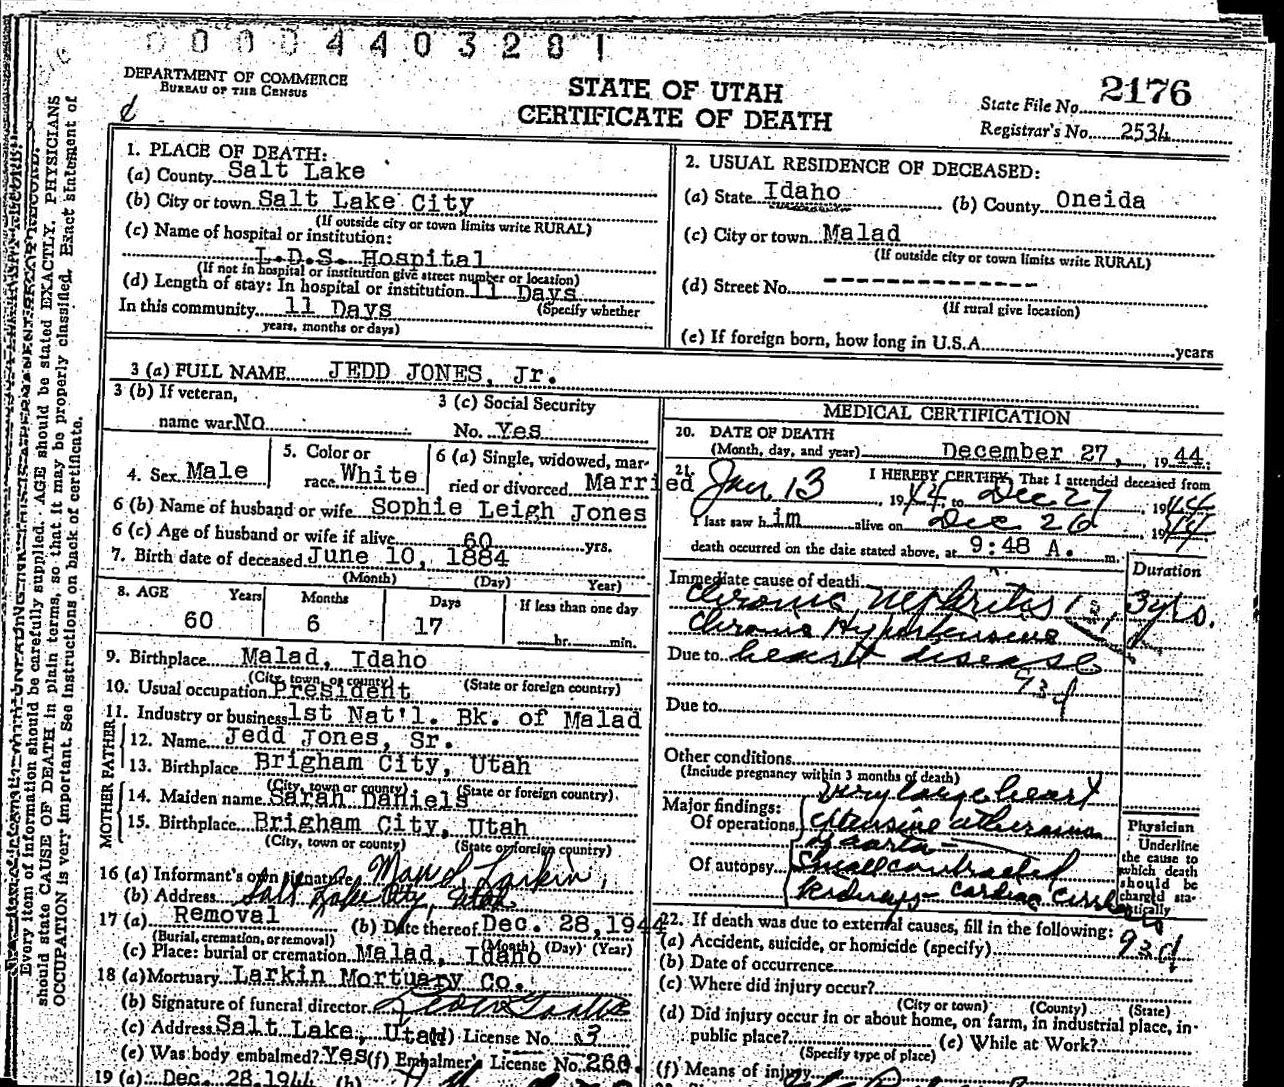 0 0 0 0 4 4 0 3 2 8 1
DEPARTMENT OF COMMERCE
BUREAU OF THE CENSUS
STATE OF UTAH
CERTIFICATE OF DEATH
State File No. 2176
Registrar's No. 2534
Every item of information should be carefully supplied. AGE should be stated EXACTLY. PHYSICIANS
should state CAUSE OF DEATH in plain terms, so that it may be properly classified. Exact statement of
OCCUPATION is very important. See instructions on back of certificate.
1. PLACE OF DEATH:
(a) County Salt Lake
(b) City or town Salt Lake City
(If outside city or town limits write RURAL)
(c) Name of hospital or institution:
L.D.S. Hospital
(If not in hospital or institution give street number or location)
(d) Length of stay: In hospital or institution 11 Days
In this community 11 Days (Specify whether
years, months or days)
2. USUAL RESIDENCE OF DECEASED:
(a) State Idaho (b) County Oneida
(c) City or town Malad
(If outside city or town limits write RURAL)
(d) Street No. ----------------
(If rural give location)
(e) If foreign born, how long in U.S.A. years
3 (a) FULL NAME JEDD JONES, Jr.
3 (b) If veteran,
name war No
3 (c) Social Security
No. Yes
4. Sex Male
5. Color or
race White
6 (a) Single, widowed, mar-
ried or divorced Married
6 (b) Name of husband or wife Sophie Leigh Jones
6 (c) Age of husband or wife if alive 60 yrs.
7. Birth date of deceased June 10, 1884
(Month) (Day) Year)
8. AGE Years Months Days If less than one day
60 6 17 hr. min.
9. Birthplace Malad, Idaho
(City, town, or county) (State or foreign country)
10. Usual occupation President
11. Industry or business 1st Nat'l. Bk. of Malad
FATHER
12. Name Jedd Jones, Sr.
13. Birthplace Brigham City, Utah
(City, town or county) (State or foreign country)
MOTHER
14. Maiden name Sarah Daniels
15. Birthplace Brigham City, Utah
(City, town or county) (State or foreign country)
16 (a) Informant's own signature Maud Larkin
(b) Address Salt Lake City, Utah
17 (a) Removal (b) Date thereof Dec. 28, 1944
(Burial, cremation, or removal) (Month) (Day) (Year)
(c) Place: burial or cremation Malad, Idaho
18 (a) Mortuary Larkin Mortuary Co.
(b) Signature of funeral director
(c) Address Salt Lake, Utah (d) License No. 23
(e) Was body embalmed? Yes (f) Embalmer's License No. 260
19 (a) Dec. 28, 1944 (b)
MEDICAL CERTIFICATION
20. DATE OF DEATH
(Month, day, and year) December 27, 1944
21. I HEREBY CERTIFY, That I attended deceased from
Jan 13 1944 to Dec 27 1944
I last saw him alive on Dec 26 1944
death occurred on the date stated above, at 9:48 A. m.
Duration
Immediate cause of death
Chronic Nephritis 131 3 yrs.
Chronic Hypertensive
Due to heart disease
93d
Due to
Other conditions
(Include pregnancy within 3 months of death)
very large heart
Major findings:
Of operations extensive atheroma
of aorta
Of autopsy small contracted
kidneys - cardiac cirrhosis
Physician
Underline
the cause to
which death
should be
charged sta-
tistically
22. If death was due to external causes, fill in the following:
(a) Accident, suicide, or homicide (specify) 93d
(b) Date of occurrence
(c) Where did injury occur?
(City or town) (County) (State)
(d) Did injury occur in or about home, on farm, in industrial place, in
public place? (e) While at Work?
(Specify type of place)
(f) Means of injury